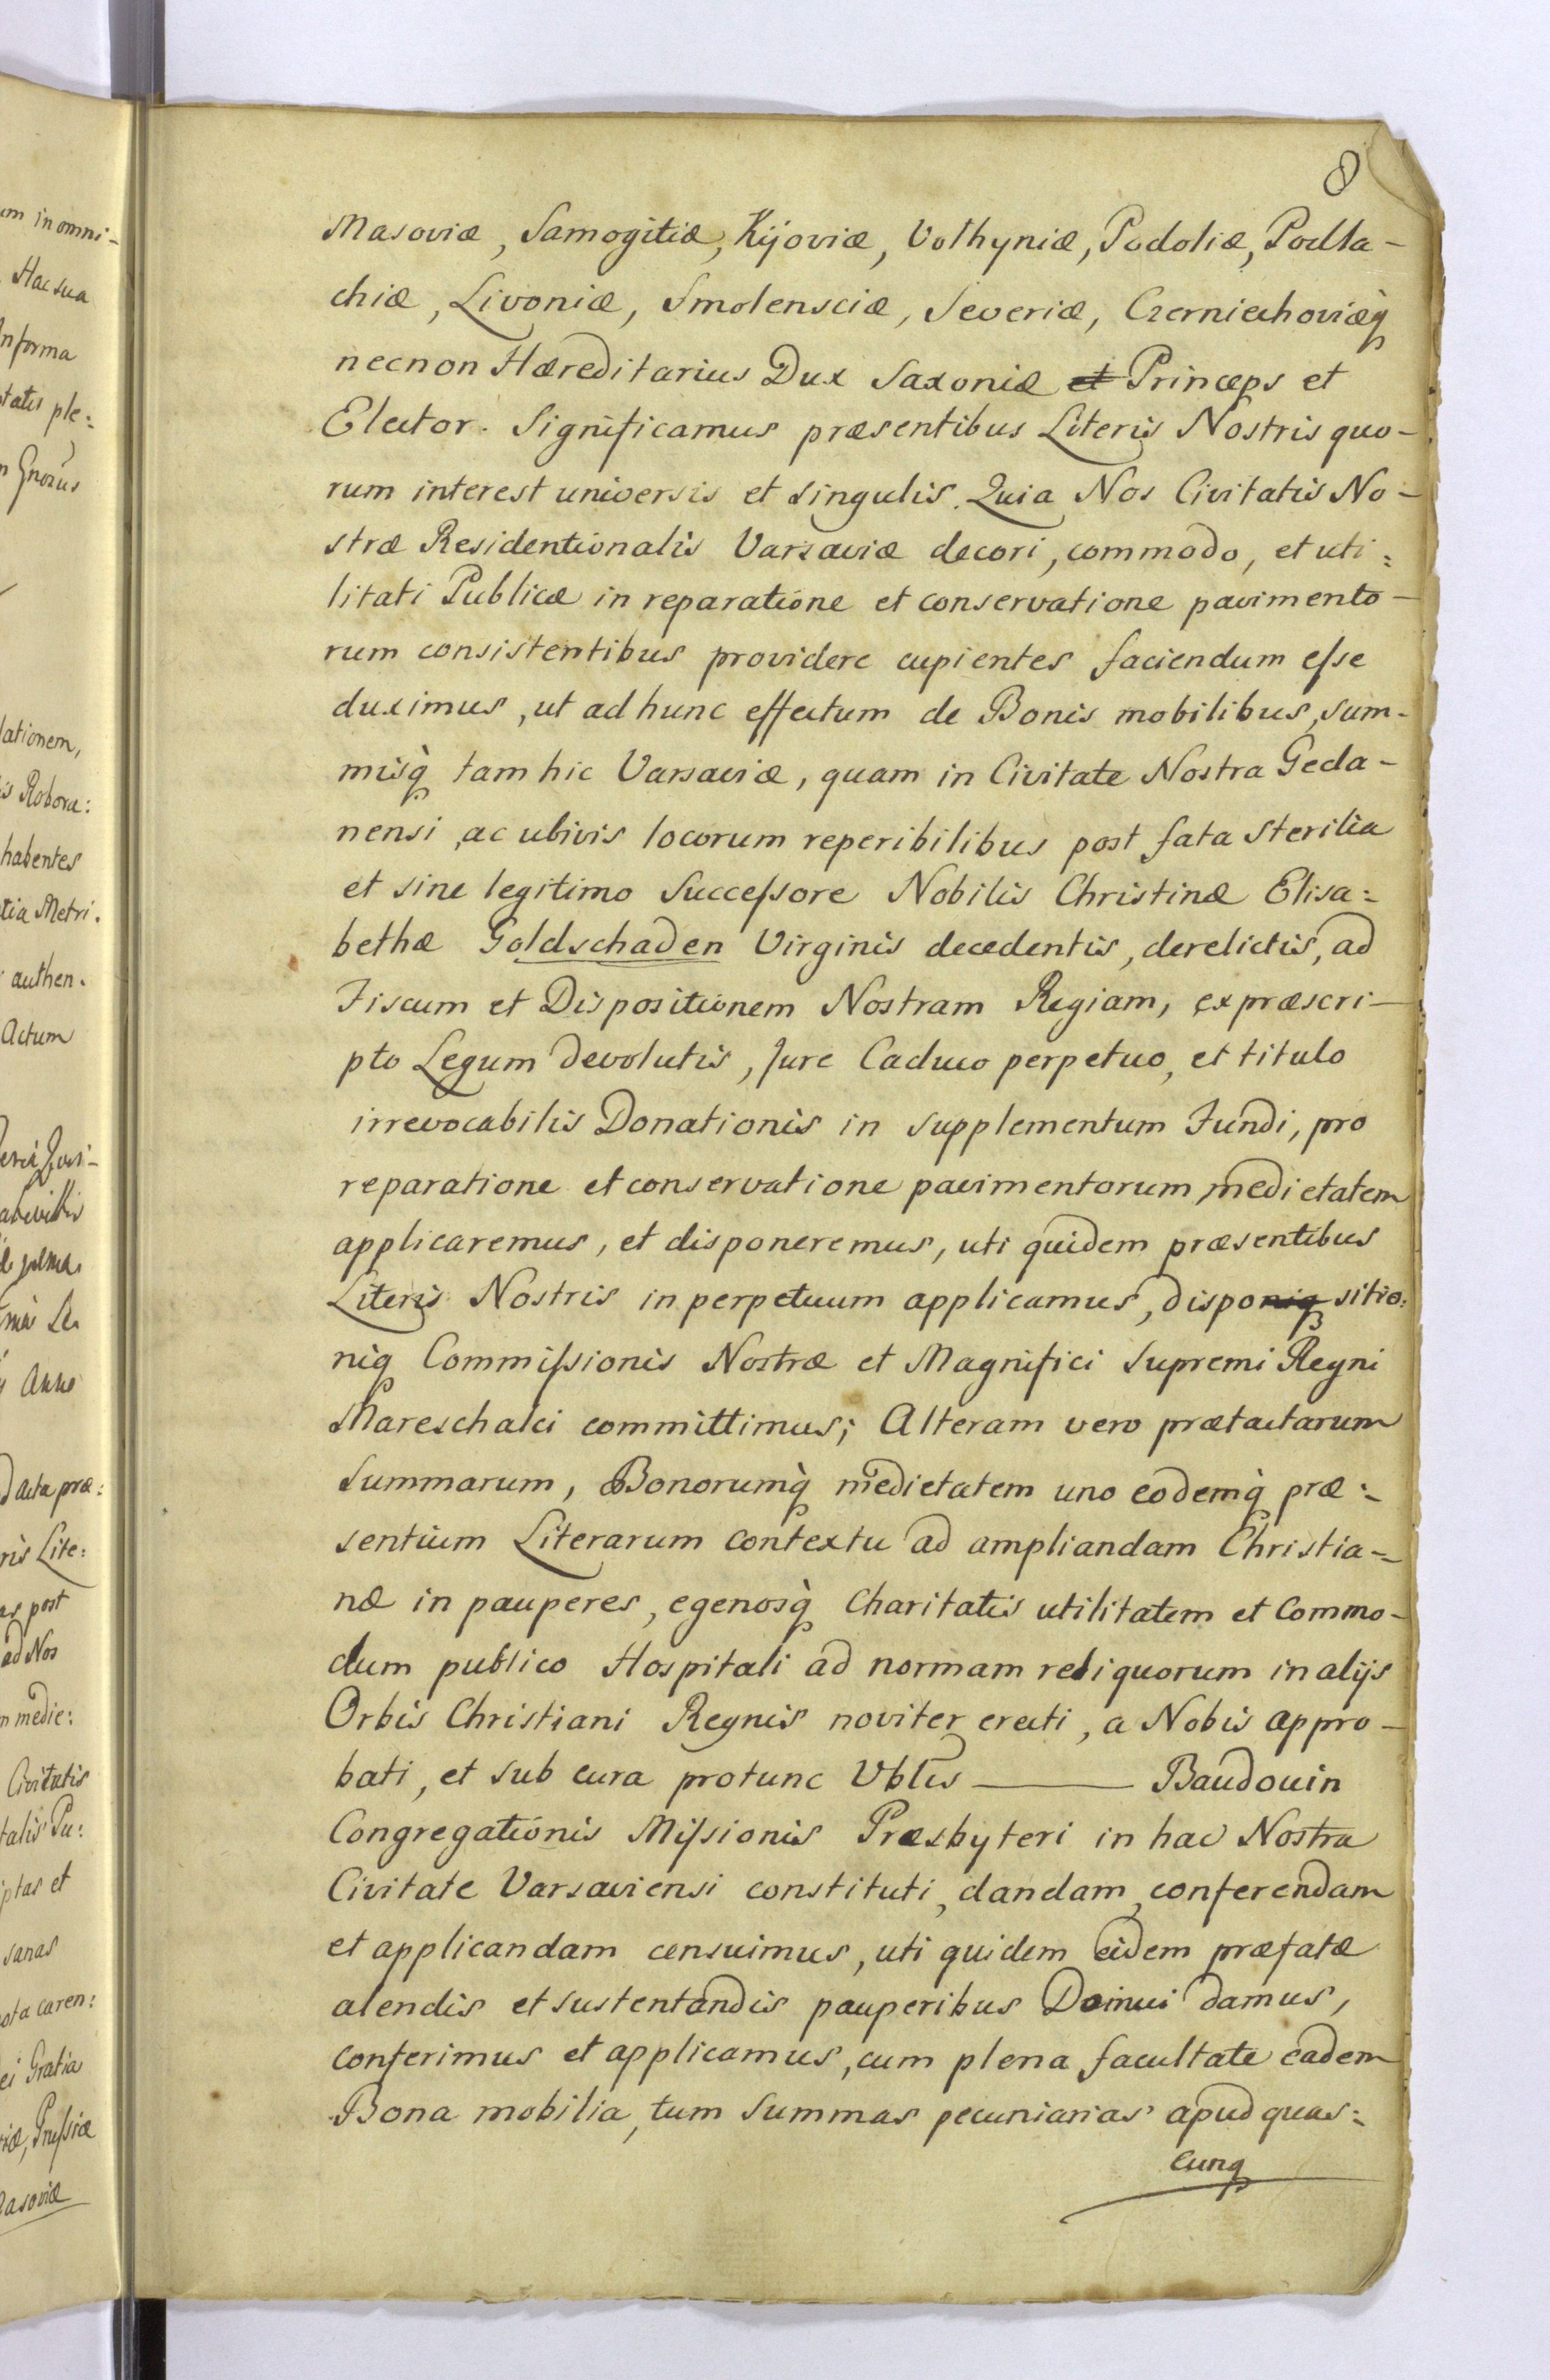 8
Masoviæ, Samogitiæ, Kijoviæ, Volhyniæ, Podoliæ, Podla-
chiæ, Livoniæ, Smolensciæ, Severiæ, Czerniechoviæq̀
necnon Hæreditarius Dux Saxoniæ et Princeps et
Elector. Significamus præsentibus Literis Nostris quo-
rum interest universis et singulis. Quia Nos Civitatis No-
stræ Residentionalis Varsaviæ decori, commodo, et uti:
litati Publicæ in reparatione et conservatione pavimento-
rum consistentibus providere cupientes faciendum eſse
duximus, ut ad hunc effectum de Bonis mobilibus, sum-
misq̀ tam hic Varsaviæ, quam in Civitate Nostra Geda-
nensi, ac ubivis locorum reperibilibus post fata sterilia
et sine legitimo Succeſsore Nobilis Christinæ Elisa:
bethæ Goldschaden Virginis decedentis, derelictis, ad
Fiscum et Dispositionem Nostram Regiam, ex præscri-
pto Legum devolutis, Jure Caduco perpetuo, et titulo
irrevocabilis Donationis in supplementum Fundi, pro
reparatione et conservatione pavimentorum, medietatem
applicaremus, et disponeremus, uti quidem præsentibus
Literis Nostris in perpetuum applicamus, disponiq sitio:
niq Commiſsionis Nostræ et Magnifici Supremi Regni
Mareschalci committimus; Alteram vero prætactarum
Summarum, Bonorumq̀ medietatem uno eodemq̀ præ:
sentium Literarum contextu ad ampliandam Christia=
næ in pauperes, egenosq̀ Charitatis utilitatem et Commo-
dum publico Hospitali ad normam reliquorum in alijs
Orbis Christiani Regnis noviter erecti, a Nobis appro-
bati, et sub cura protunc Vblis ——— Baudouin
Congregationis Miſsionis Præsbyteri in hac Nostra
Civitate Varsaviensi constituti, dandam, conferendam
et applicandam censuimus, uti quidem eidem præfatæ
alendis et sustentandis pauperibus Domui damus,
conferimus et applicamus, cum plena facultate eadem
Bona mobilia, tum Summas pecuniarias apud quas:
cunq